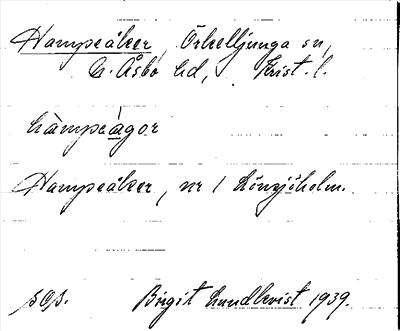 Hampeåker, Örkelljunga sn,
N. Åsbo hd, Krist. l.
hàmpeágor
Hampeåker, nr 1 Lönsjöholm.
sOs.
Birgit Lundkvist 1939.